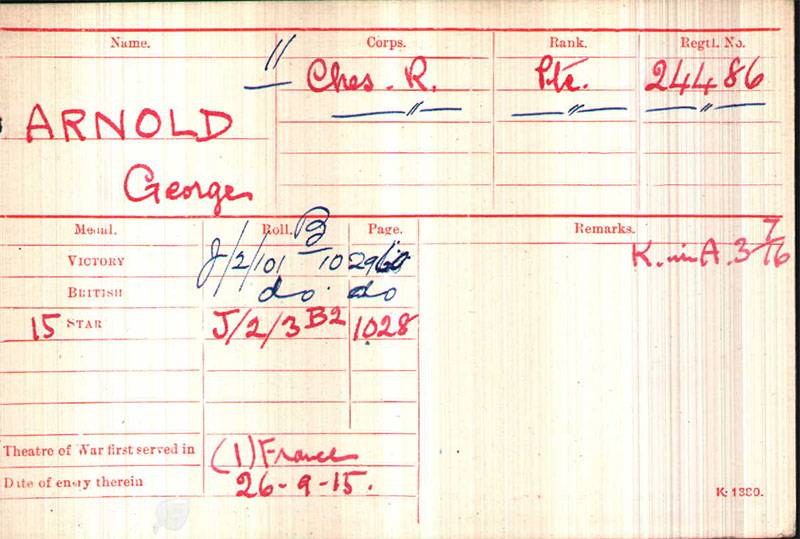 Name. Corps. Rank. Regtl. No.
" Ches. R. Pte. 24486
ARNOLD " " "
George
Medal. Roll. Page. Remarks.
VICTORY J/2/101 B 10 K. in A. 3/7/16
BRITISH do. do
15 STAR J/2/3 B2 1028
Theatre of War first served in (1) France
Date of entry therein 26-9-15.
K. 1380.